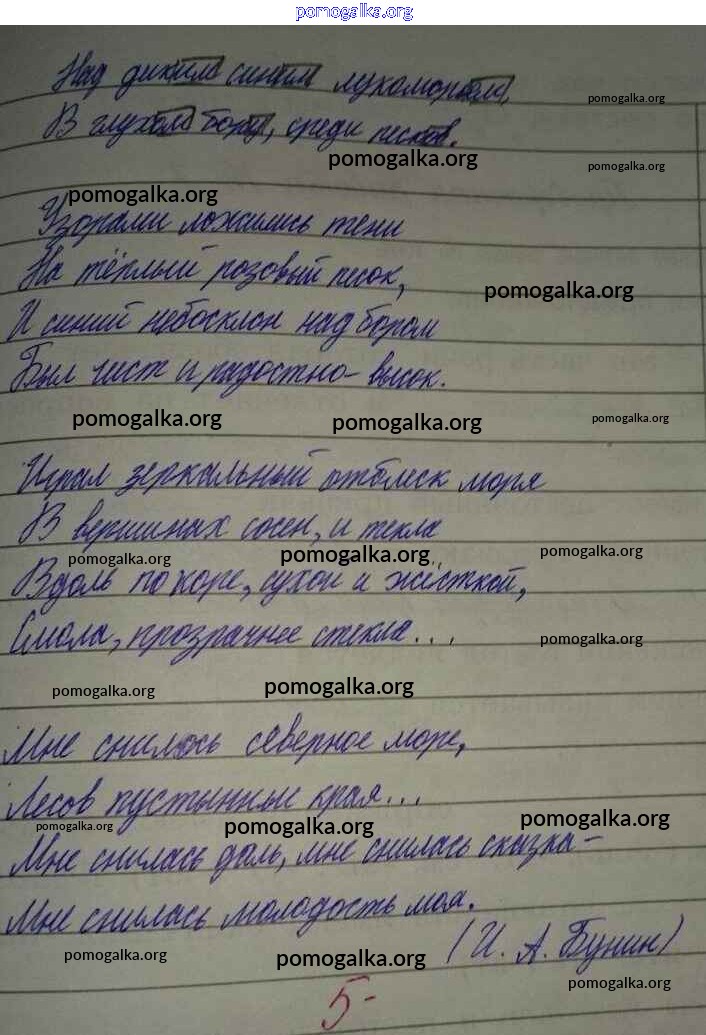 pomogalka.org
Над диким синим лукоморьем,
pomogalka.org
В глухом бору, среди песков.
pomogalka.org
pomogalka.org
pomogalka.org
Узорами ложились тени
На тёплый розовый песок,
pomogalka.org
И синий небосклон над бором
Был чист и радостно-высок.
pomogalka.org
pomogalka.org
pomogalka.org
Играл зеркальный отблеск моря
В вершинах сосен, и текла
pomogalka.org
pomogalka.org
pomogalka.org
Вдоль по коре, сухой и жёсткой,
Смола, прозрачнее стекла...
pomogalka.org
pomogalka.org
pomogalka.org
Мне снилось северное море,
Лесов пустынные края...
pomogalka.org
pomogalka.org
pomogalka.org
Мне снилась даль, мне снилась сказка –
Мне снилась молодость моя.
(И. А. Бунин)
pomogalka.org
pomogalka.org
pomogalka.org
5-